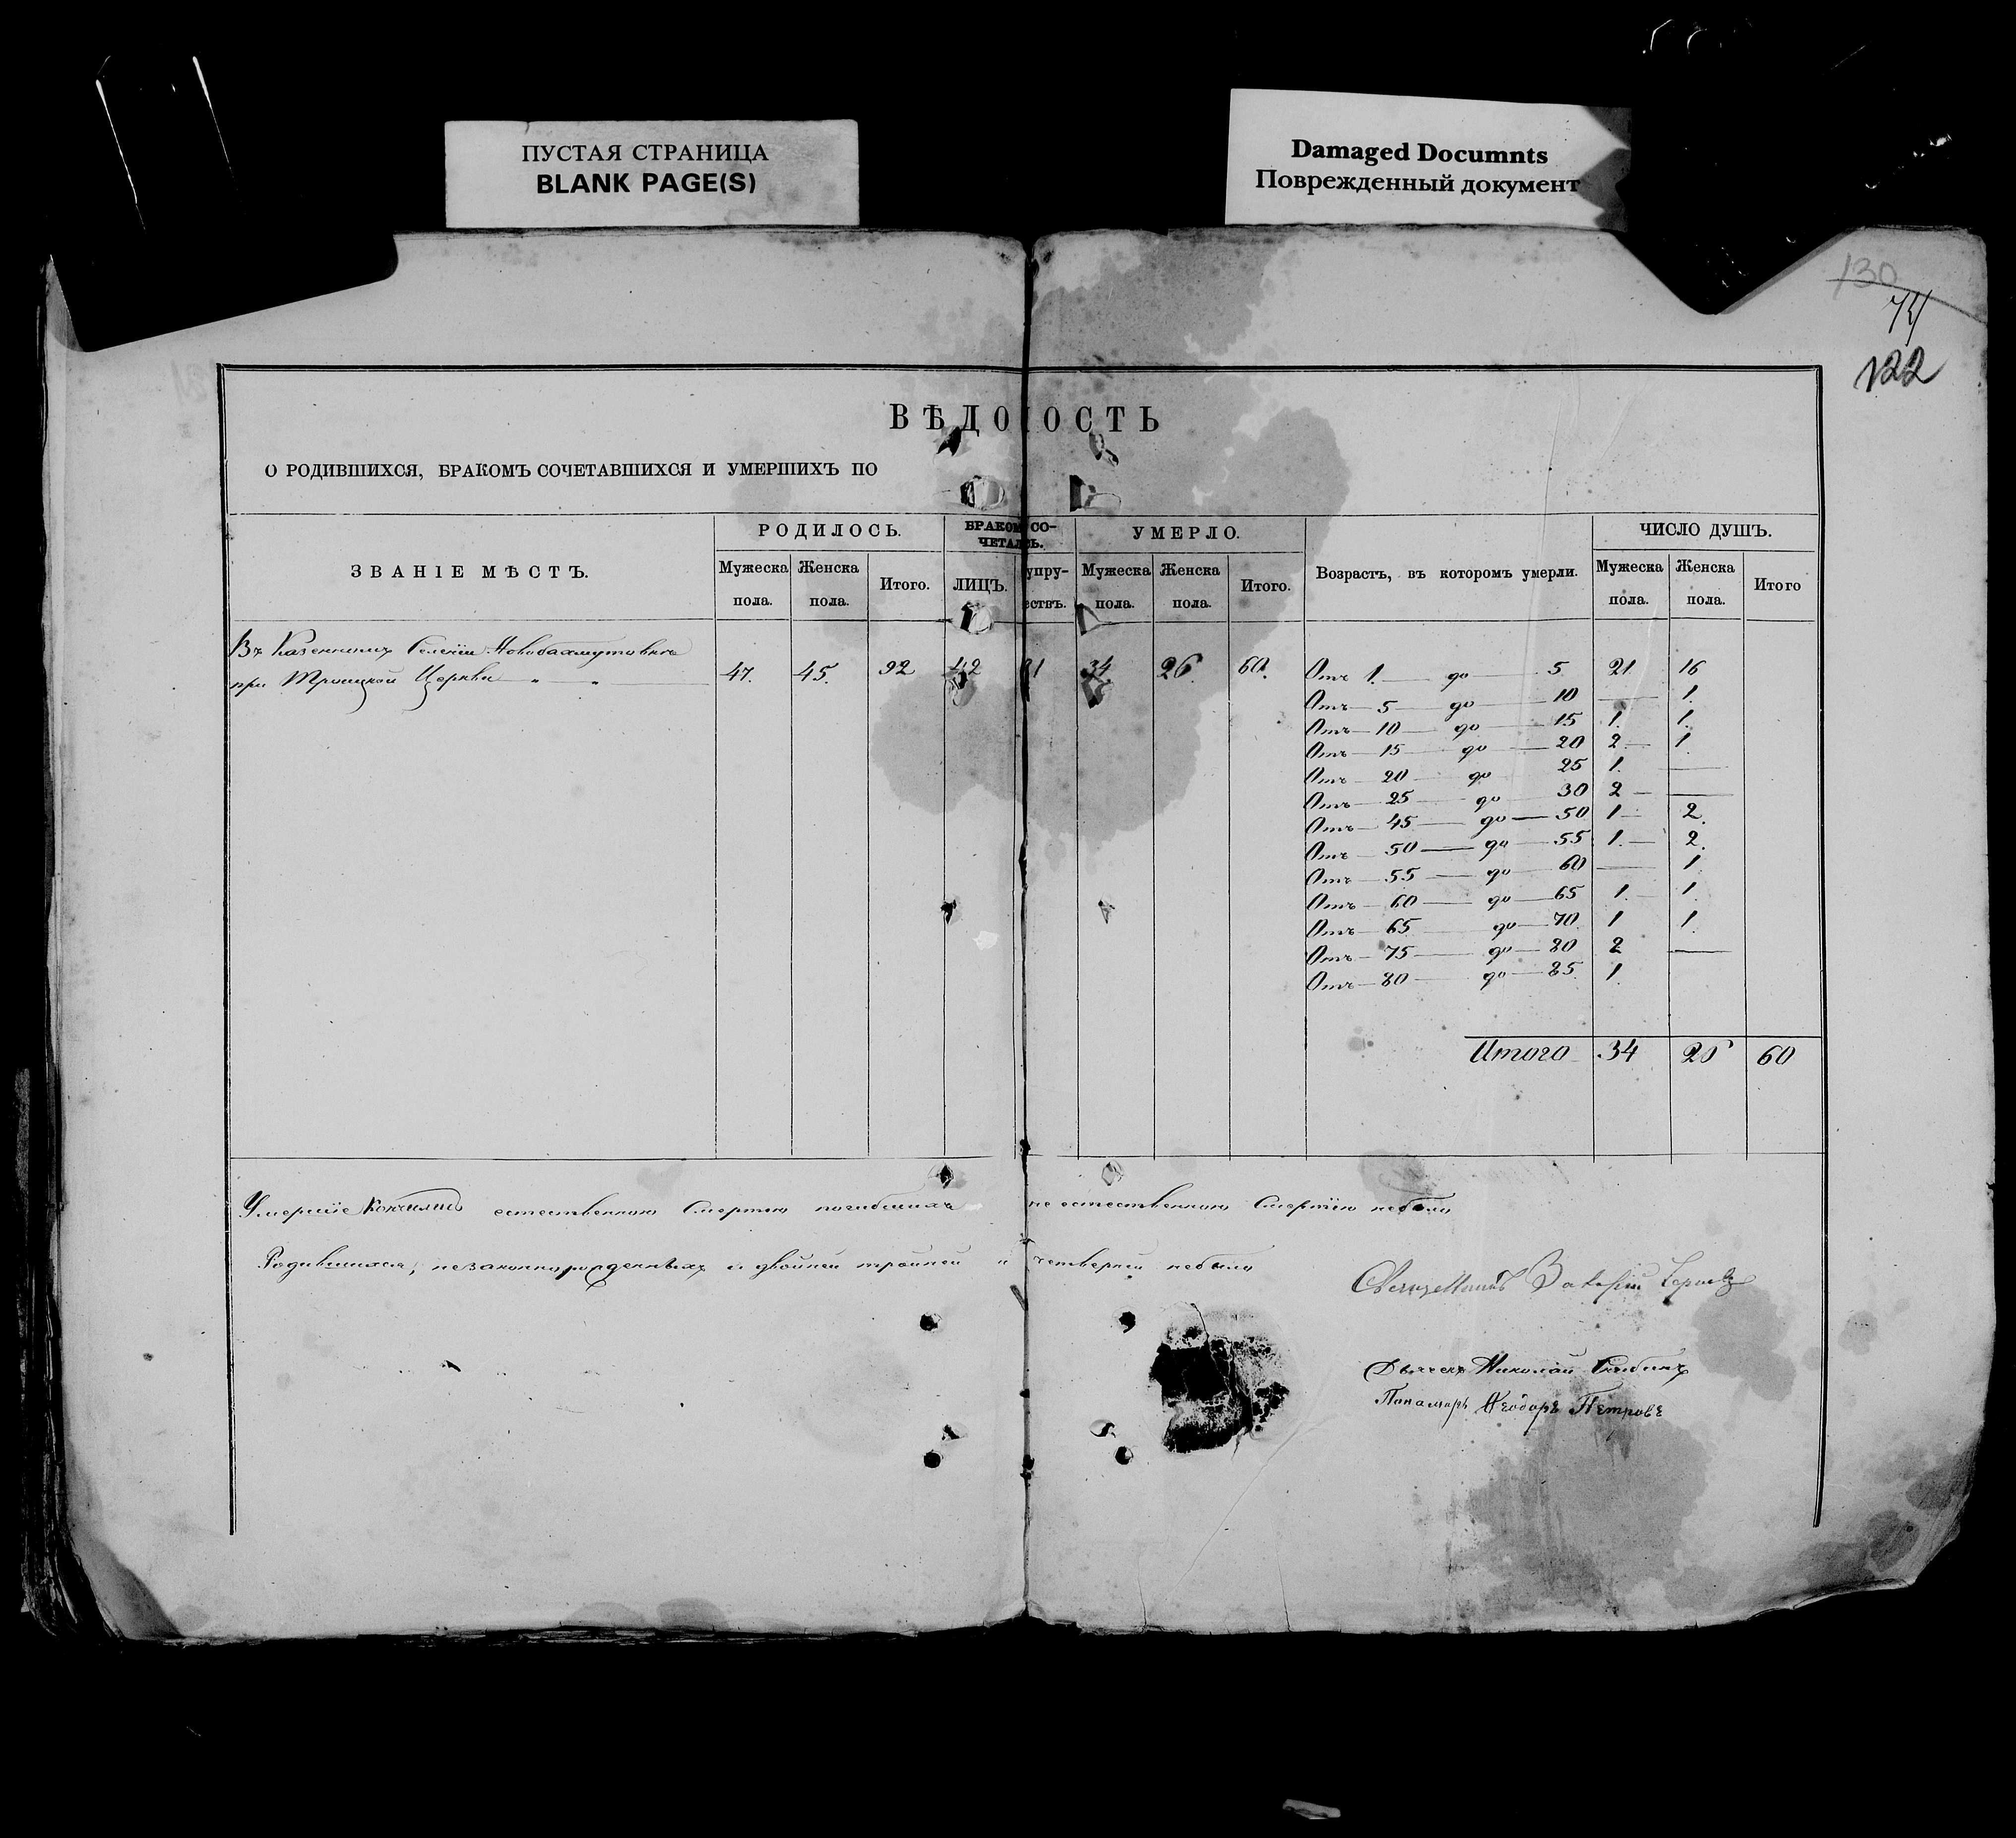 ПУСТАЯ СТРАНИЦА
BLANK PAGE(S)
Damaged Documnts
Поврежденный документ
130
74
122
ВѢДО ОСТЬ
О РОДИВШИХСЯ, БРАКОМЪ СОЧЕТАВШИХСЯ И УМЕРШИХЪ ПО
ЗВАНІЕ МѢСТЪ. РОДИЛОСЬ. БРАКОМ СО-ЧЕТАЛСЬ. УМЕРЛО. Возрастъ, въ которомъ умерли. ЧИСЛО ДУШЪ.
Мужеска пола. Женска пола. Итого. ЛИЦЪ. упру-ествъ. Мужеска пола. Женска пола. Итого. Мужеска пола. Женска пола. Итого
Въ Казенномъ Селеніи Новобахмутовкѣ
при Троицкой Церкви — " — " — 47. 45. 92 42 21 34 26. 60.
Отъ 1. — до — 5 21 16
Отъ — 5 — до — 10 — 1.
Отъ — 10 — до — 15 1. 1.
Отъ — 15 до — 20 2 — 1.
Отъ — 20 — до 25 1. —
Отъ — 25 — до — 30 2 — —
Отъ — 45 — до — 50 1 — 2.
Отъ — 50 — до — 55 1. — 2.
Отъ — 55 — до — 60 — 1.
Отъ — 60 — до — 65 1. — 1.
Отъ — 65 до — 70. 1 1.
Отъ — 75 — до — 80 2 —
Отъ — 80 — до — 85. 1.
Итого 34 26 60
Умершіе кончились естественною Смертію погибшихъ не естественною Смертію небыло
Родившихся, незаконнорожденныхъ и двойней тройней и четверней небыло
Священникъ
Дьячекъ Николай
Пономарь Ѳеодоръ Петровъ